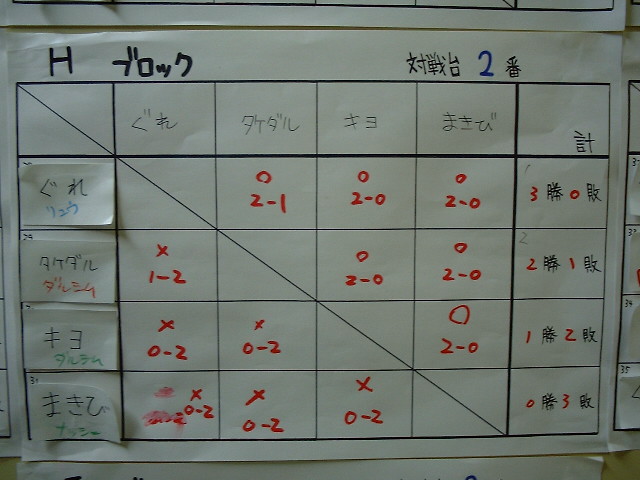 H ブロック 対戦台 2 番
ぐれ タケダル キヨ まきび 計
ぐれ ○ ○ ○ 3勝0敗
リュウ 2-1 2-0 2-0
タケダル × ○ ○ 2勝1敗
ダルシム 1-2 2-0 2-0
キヨ × × ○ 1勝2敗
ダルシム 0-2 0-2 2-0
まきび × × × 0勝3敗
ナッシー 0-2 0-2 0-2